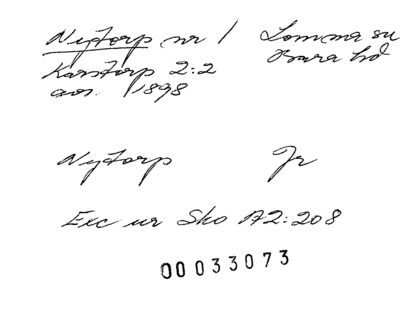 Nytorp nr 1 Lomma sn
Karstorp 2:2 Bara hd
avs. 1898
Nytorp Jr
Exc ur Sko A2:208
00033073